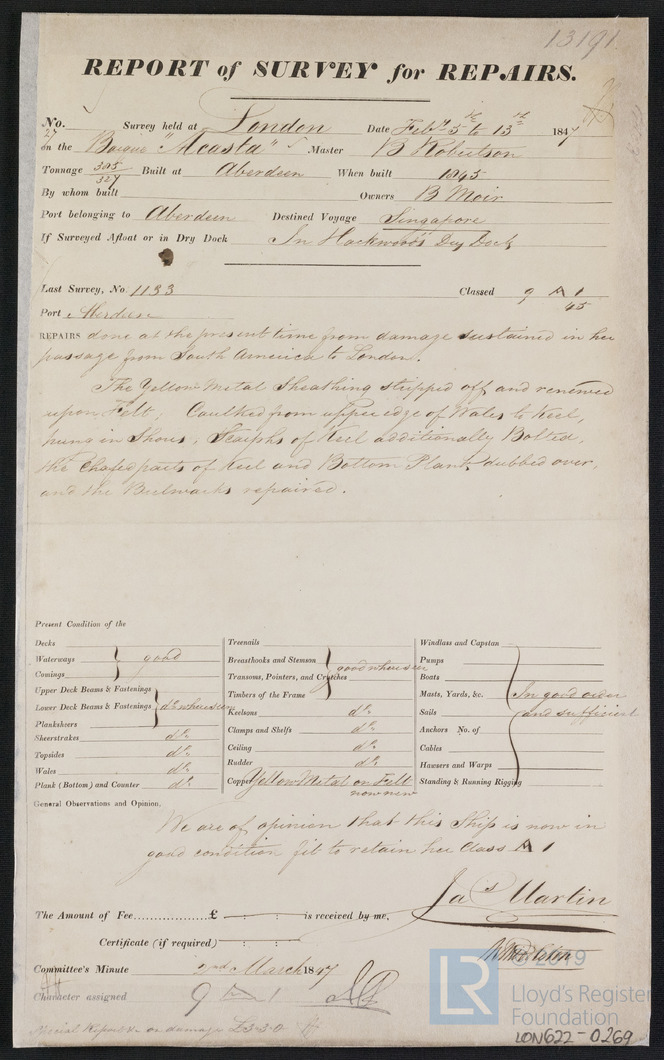 13191
REPORT of SURVEY for REPAIRS.
No. 27 Survey held at London Date Feby 5th to 13th 1847
on the Barque "Acasta" Master B Robertson
Tonnage 305/327 Built at Aberdeen When built 1845
By whom built Owners B Moir
Port belonging to Aberdeen Destined Voyage Singapore
If Surveyed Afloat or in Dry Dock In Hackwood's Dry Dock
Last Survey, No. 1133 Classed 9 A 1
Port Aberdeen 45
REPAIRS done at the present time from damage sustained in her
passage from South America to London.
The Yellow Metal Sheathing stripped off and renewed
upon Felt; Caulked from upper edge of Wales to Keel,
hung in Shores, Scarphs of Keel additionally Bolted,
the Chafed parts of Keel and Bottom Plank dubbed over,
and the Bulwarks repaired.
Present Condition of the
Decks
Waterways good
Comings
Upper Deck Beams & Fastenings
Lower Deck Beams & Fastenings do where seen
Planksheers
Sheerstrakes do
Topsides do
Wales do
Plank (Bottom) and Counter do
Treenails
Breasthooks and Stemson good where seen
Transoms, Pointers, and Crutches
Timbers of the Frame
Keelsons do
Clamps and Shelfs do
Ceiling do
Rudder do
Copper Yellow Metal on Felt
now new
Windlass and Capstan
Pumps
Boats
Masts, Yards, &c. In good order
Sails and sufficient
Anchors No. of
Cables
Hawsers and Warps
Standing & Running Rigging
General Observations and Opinion.
We are of opinion that this Ship is now in
good condition fit to retain her Class A 1
Jas Martin
The Amount of Fee............... £ is received by me,
Certificate (if required)
Committee's Minute 2nd March 1847
Character assigned 9 A 1
Special Report &c on damage £3.3.0
© 2019
LR
Lloyd's Register
Foundation
LON622-0269